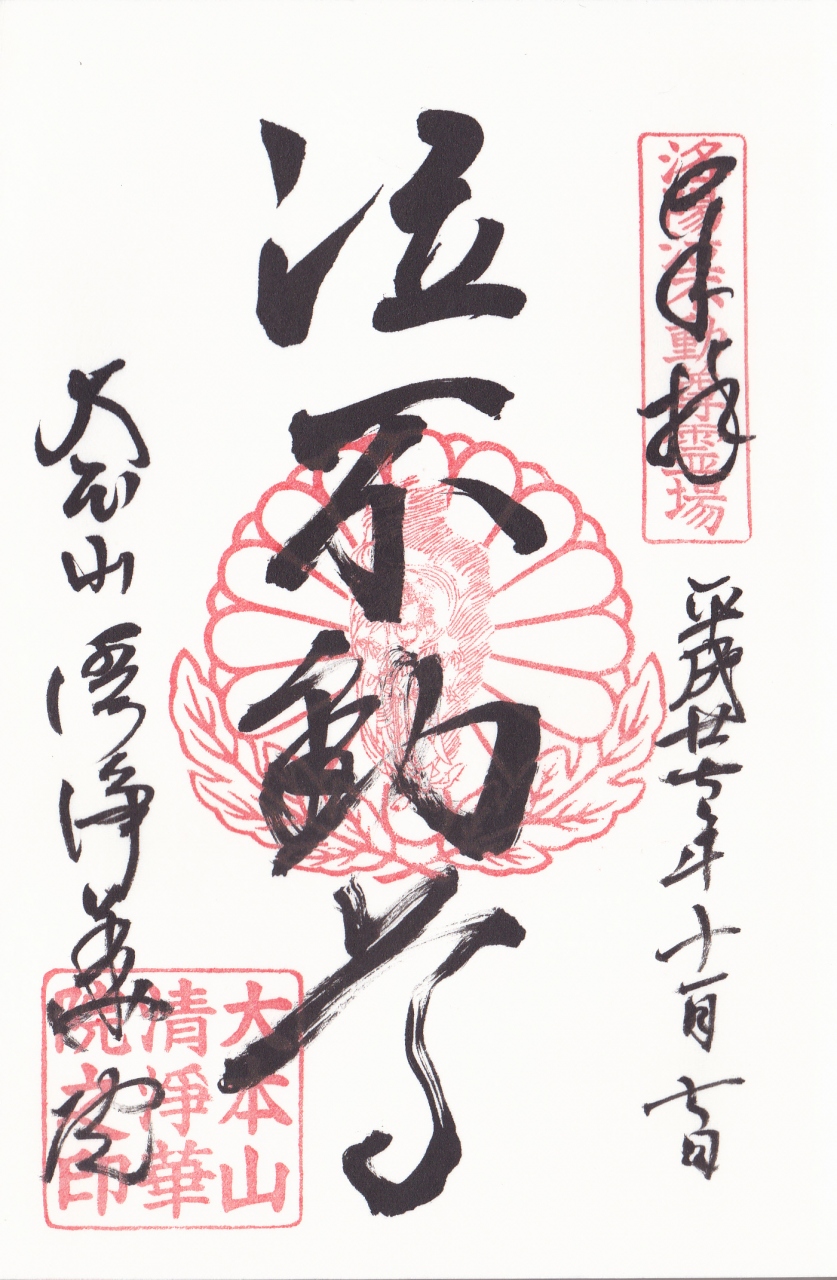 奉拝
洛陽泣不動尊霊場
平成廿七年十一月七日
泣不動尊
大本山清浄華院
大本山
清浄華
院之印